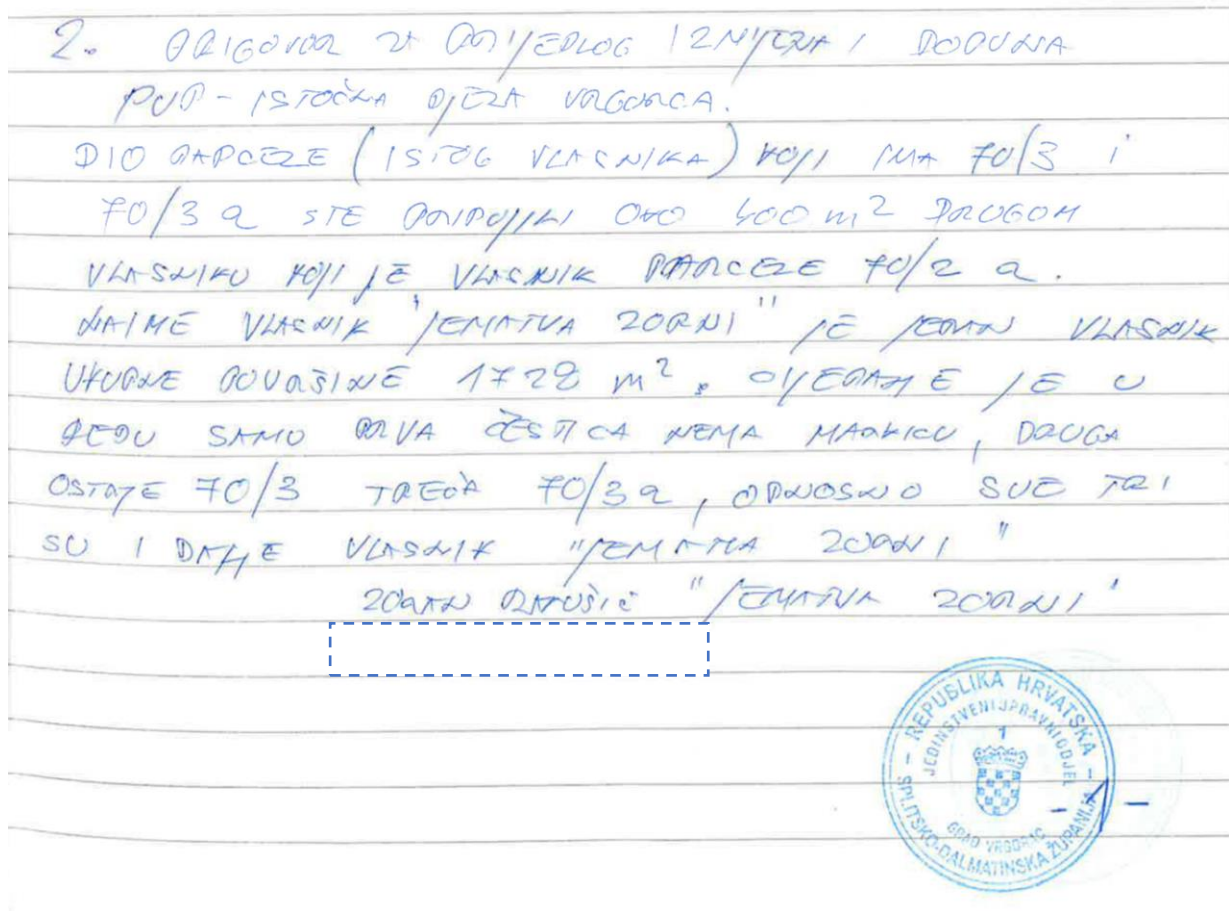 2. PRIGOVOR NA PRIJEDLOG IZMJENA I DOPUNA
PUP - ISTOČNA OBJEZA VRGORCA.
DIO PARCELE (ISTOG VLASNIKA) KOJI IMA 70/3 i
70/3 a STE PRIPOJILI OKO 400 m² DRUGOM
VLASNIKU KOJI JE VLASNIK PARCELE 70/2 a.
NAIME VLASNIK "JEMATVA ZORNI" JE JEDAN VLASNIK
UKUPNE POVRŠINE 1728 m², JE U
REDU SAMO PRVA ČESTICA NEMA MARKICU, DRUGA
OSTAJE 70/3 TREĆA 70/3a, ODNOSNO SVE TRI
SU I DALJE VLASNIK "JEMATVA ZORNI"
ZORAN RATUŠIĆ "JEMATVA ZORNI"
REPUBLIKA HRVATSKA
SPLITSKO-DALMATINSKA ŽUPANIJA
JEDINSTVENI UPRAVNI ODJEL
1
GRAD VRGORAC
- 1 -